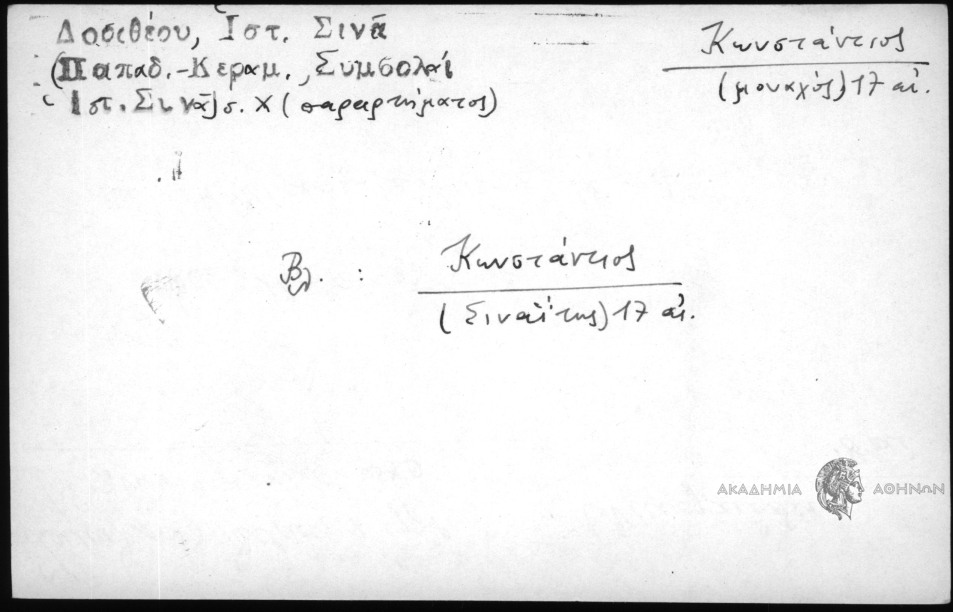 Δοσιθέου, Ἱστ. Σινᾶ
(Παπαδ.-Κεραμ., Συμβολαί
Ἱστ. Σινᾶ) σ. Χ (παραρτήματος)
Κωνστάντιος
(μοναχός) 17 αἰ.
Βλ. : Κωνστάντιος
(Σιναΐτης) 17 αἰ.
ΑΚΑΔΗΜΙΑ ΑΘΗΝΩΝ